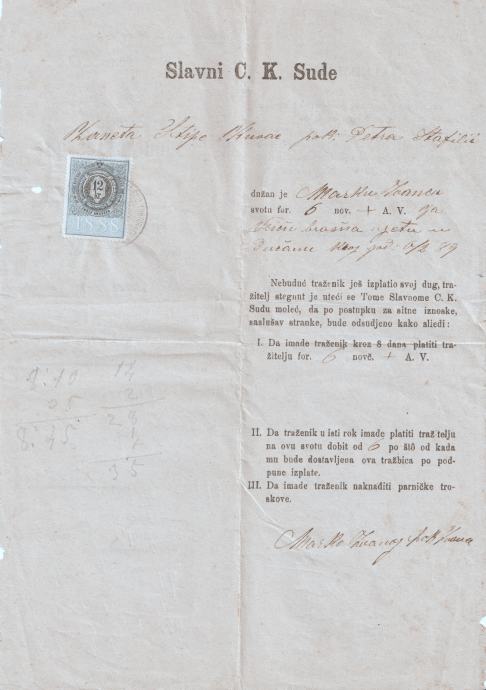 Slavni C. K. Sude
Stipe pok: Petra Stafilić
12
1888
dužan je Marku
svotu for. 6 nov. + A. V. za
brašna uzeta u
Dućanu
Nebuduć traženik još izplatio svoj dug, tra-
žitelj stegont je uteći se Tome Slavnome C. K.
Sudu moleć, da po postupku za sitne iznoske,
saslušav stranke, bude odsudjeno kako sliedi:
I. Da imade traženik kroz 8 dana platiti tra-
žitelju for. 6 novč. + A. V.
II. Da traženik u isti rok imade platiti traž telju
na ovu svotu dobit od 6 po štò od kada
mu bude dostavljena ova tražbica po pod-
pune izplate.
III. Da imade traženik naknaditi parničke tro-
skove.
Marko pok Ivana